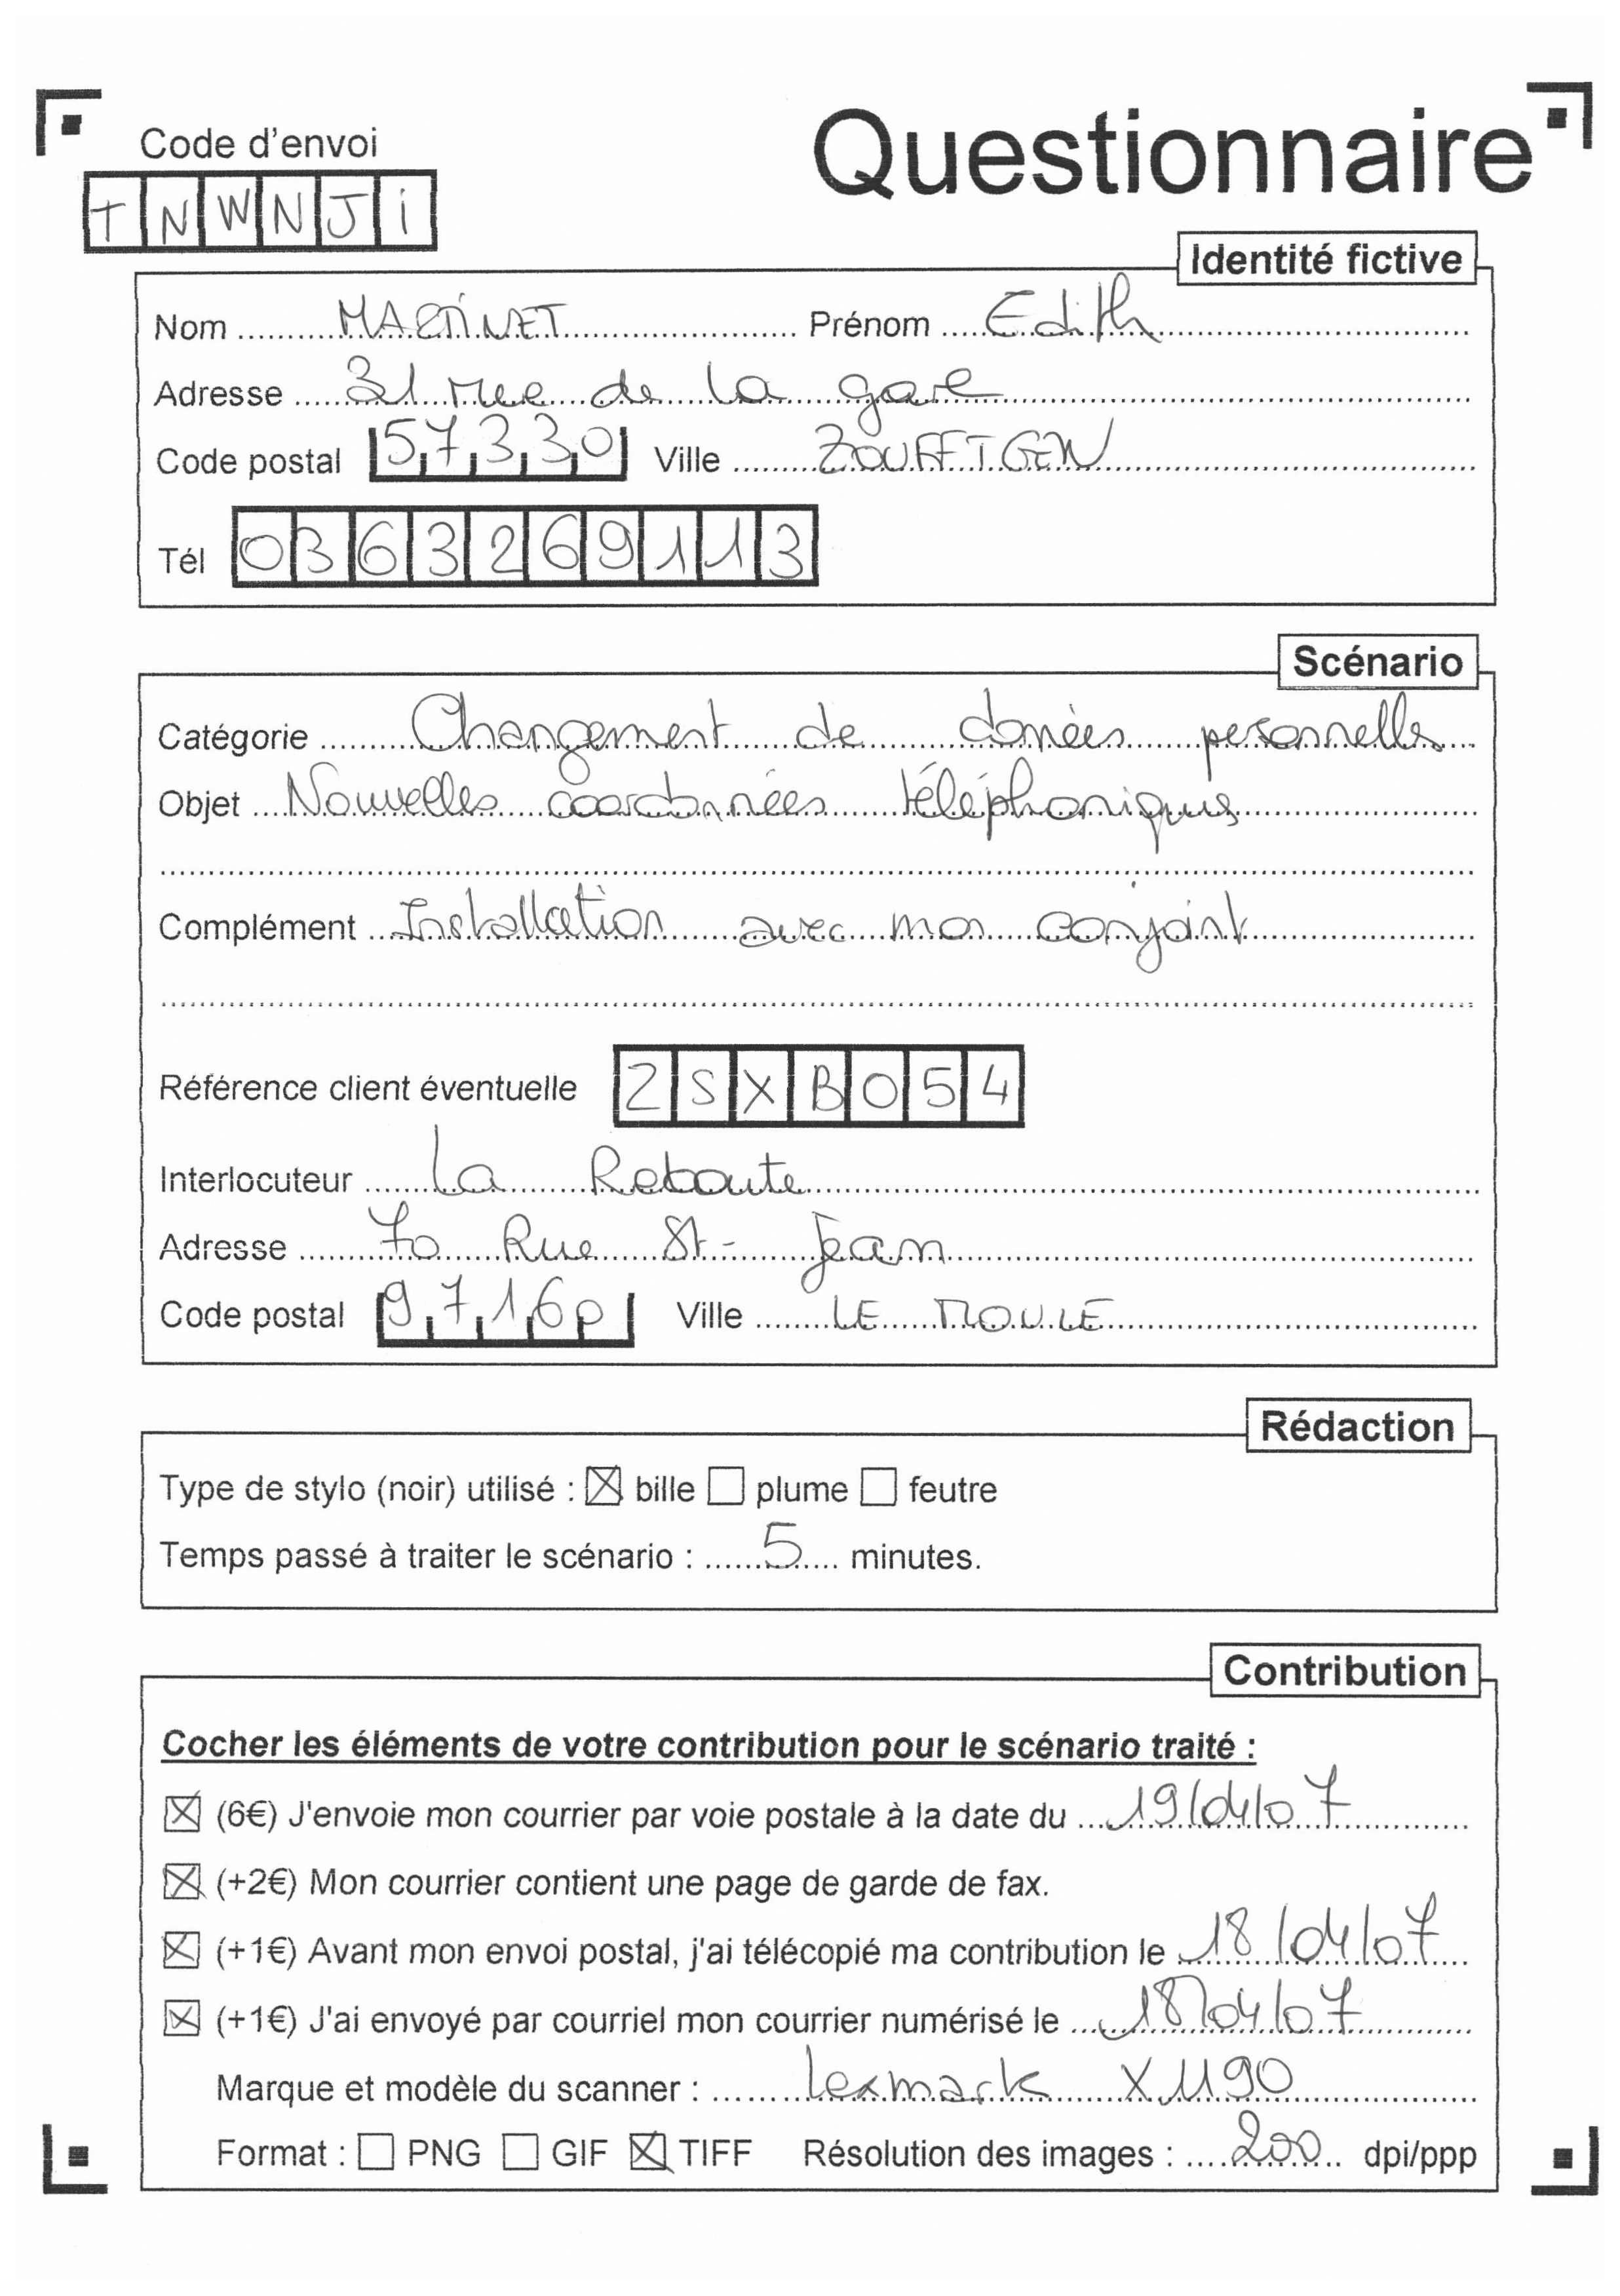 Questionnaire
Code d'envoi
TNWNJi
Identité fictive
Nom MARTINET Prénom Edith
Adresse 31 rue de la gare
Code postal 57330 Ville ZOUFFTGEN
Tél 0363269113
Scénario
Catégorie Changement de données personnelles
Objet Nouvelles coordonnées téléphoniques
Complément Installation avec mon conjoint
Référence client éventuelle 2SXB054
Interlocuteur La Reboute
Adresse 70 Rue St-Jean
Code postal 97160 Ville LE MOULE
Rédaction
Type de stylo (noir) utilisé : ☒ bille ☐ plume ☐ feutre
Temps passé à traiter le scénario : 5 minutes.
Contribution
Cocher les éléments de votre contribution pour le scénario traité :
☒ (6€) J'envoie mon courrier par voie postale à la date du 19/04/07
☒ (+2€) Mon courrier contient une page de garde de fax.
☒ (+1€) Avant mon envoi postal, j'ai télécopié ma contribution le 18/04/07
☒ (+1€) J'ai envoyé par courriel mon courrier numérisé le 18/04/07
Marque et modèle du scanner : lexmark X1190
Format : ☐ PNG ☐ GIF ☒ TIFF Résolution des images : 200 dpi/ppp